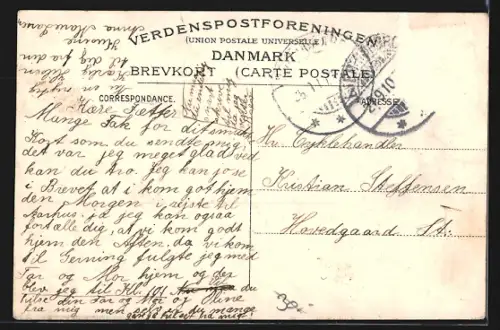 VERDENSPOSTFORENINGEN
(UNION POSTALE UNIVERSELLE)
DANMARK
BREVKORT (CARTE POSTALE)
CORRESPONDANCE.
ADRESSE.
Kære Fætter
Mange Tak for dit smukke
Kort som du sendte mig,
det var jeg meget glad ved
kan du tro. Jeg kan jo se
i Brevet at i kom godt hjem
den Morgen i rejste til
Aarhus. ja jeg kan ogsaa
fortælle dig, at vi kom godt
hjem den Aften, da vi kom
til Gerning fulgte jeg med
Far og Mor hjem og der
blev jeg til Kl. 10 du
hilse din Far og Mor og Stine
fra mig men selv er du mange
Gange hilset fra mig.
Kærlig Hilsen
til dig fra din
Kusine
Anna
Hr. Cyklehandler
Kristian Steffensen
Hovedgaard St.